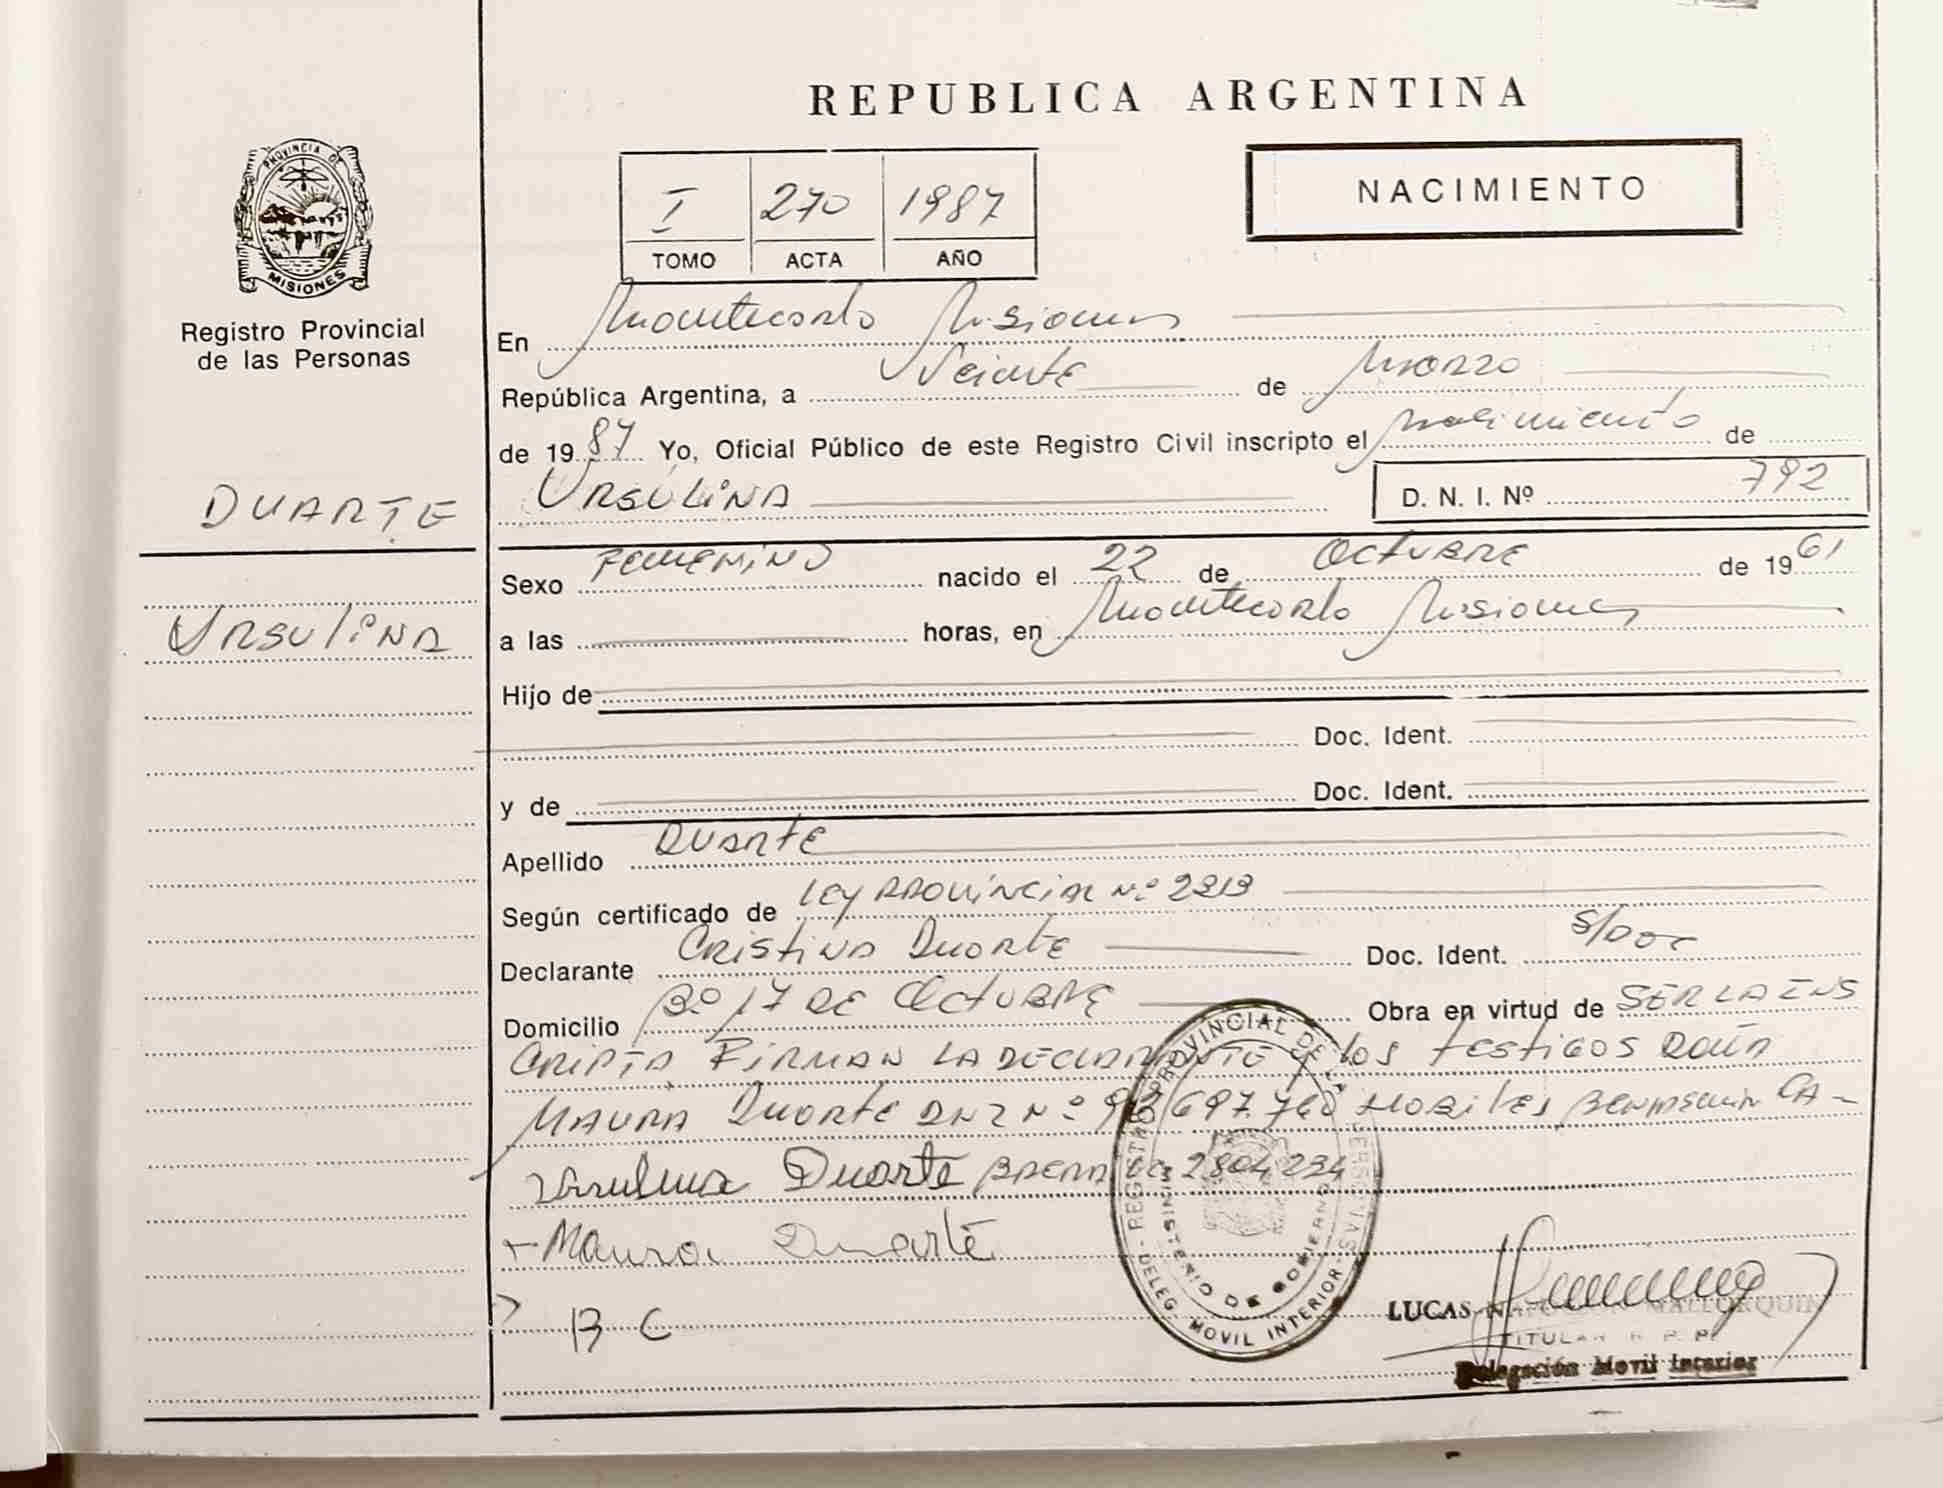 REPUBLICA ARGENTINA
PROVINCIA DE
MISIONES
Registro Provincial
de las Personas
I 270 1987
TOMO ACTA AÑO
NACIMIENTO
En Montecarlo Misiones
República Argentina, a Veinte de Marzo
de 1987 Yo, Oficial Público de este Registro Civil inscripto el Nacimiento de
DUARTE
URSULINA D. N. I. Nº 792
Sexo FEMENINO nacido el 22 de OCTUBRE de 1961
URSULINA
a las horas, en Montecarlo Misiones
Hijo de
Doc. Ident.
y de Doc. Ident.
Apellido DUARTE
Según certificado de LEY PROVINCIAL Nº 2313
Declarante CRISTINA DUARTE Doc. Ident. S/DOC
Domicilio Bº 17 DE OCTUBRE Obra en virtud de SER LA INS
CRIPTA FIRMAN LA DECLARANTE y los testigos
MAURA DUARTE DNI Nº BENJAMIN CA-
Ursulina Duarte 2804234
Maura Duarte
B C
REGISTRO PROVINCIAL DE LAS PERSONAS
MINISTERIO DE GOBIERNO
DELEG. MOVIL INTERIOR
LUCAS MALLORQUIN
TITULAR R. P. P.
Delegación Movil Interior